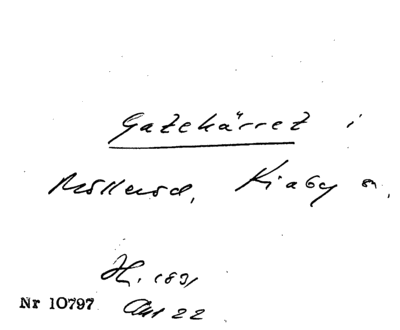 Gatekärret i
Mölleröd, Kiaby sn.
H. 1891
Nr 10797
22